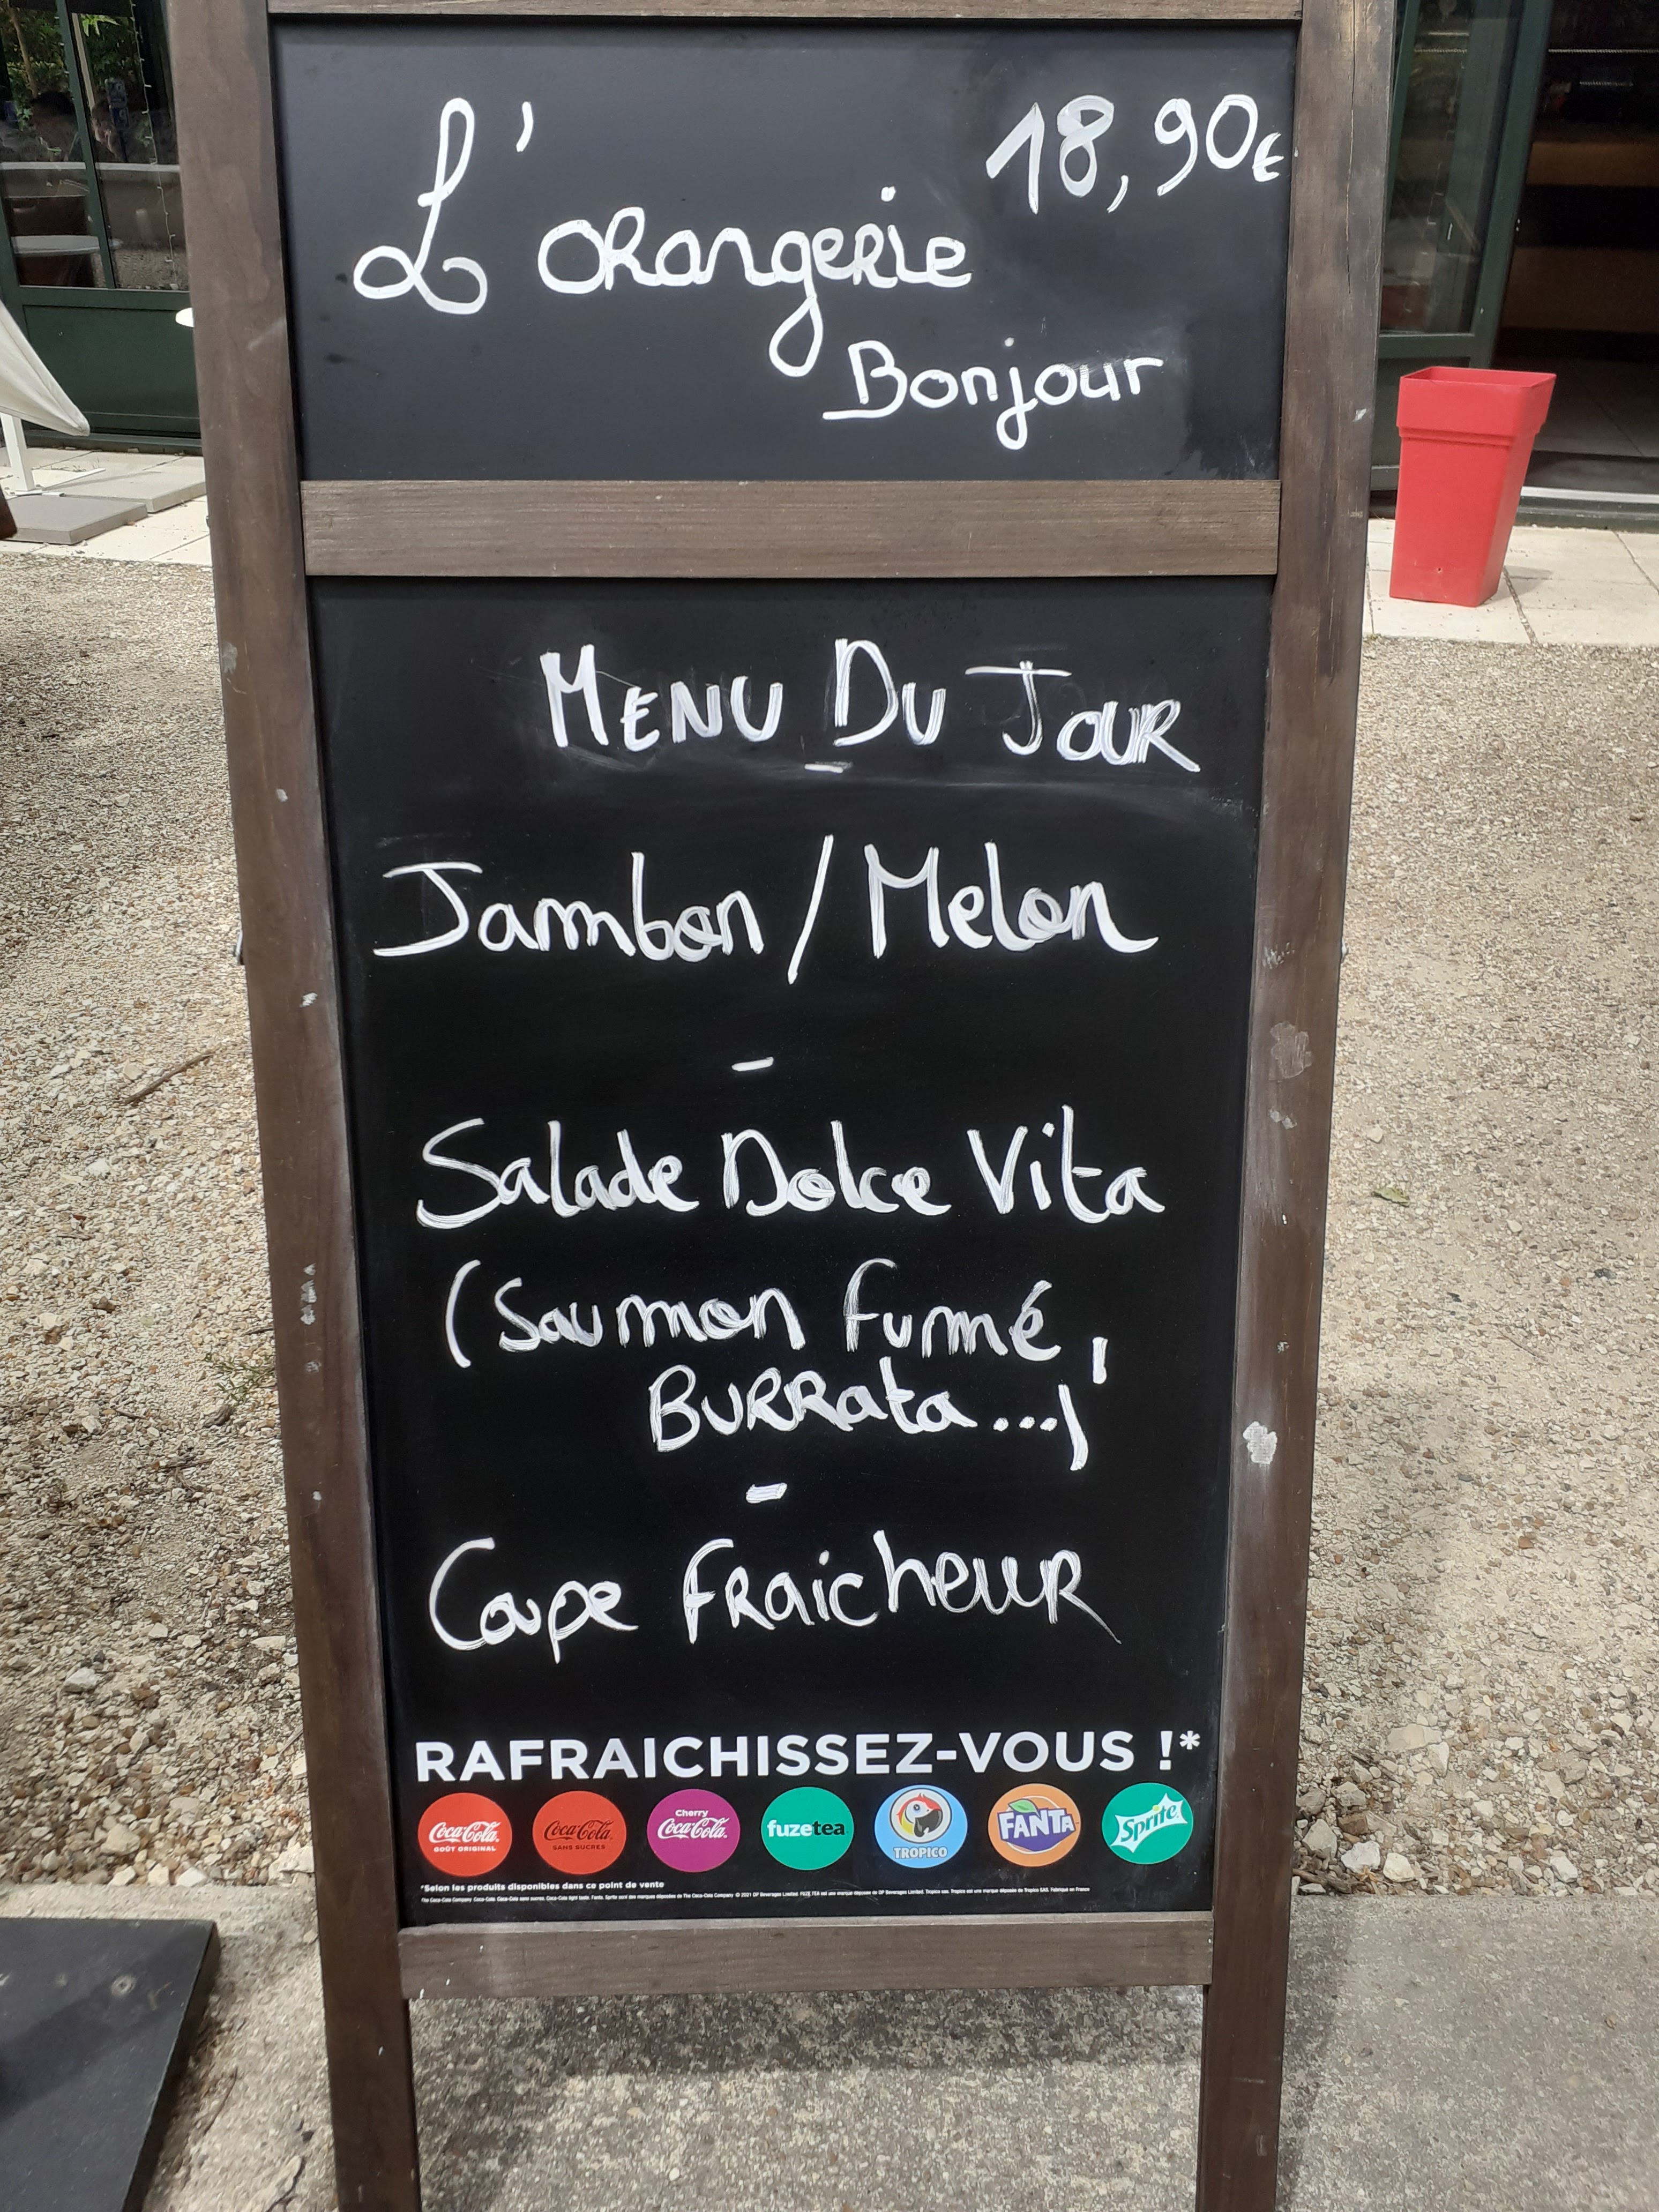 L'orangerie
18,90€
Bonjour
Menu Du Jour
-
Jambon / Melon
-
Salade Dolce Vita
(Saumon fumé,
Burrata...)
-
Coupe Fraicheur
RAFRAICHISSEZ-VOUS !*
Coca-Cola GOÛT ORIGINAL
Coca-Cola SANS SUCRES
Cherry Coca-Cola
fuzetea
TROPICO
FANTA
Sprite
*Selon les produits disponibles dans ce point de vente